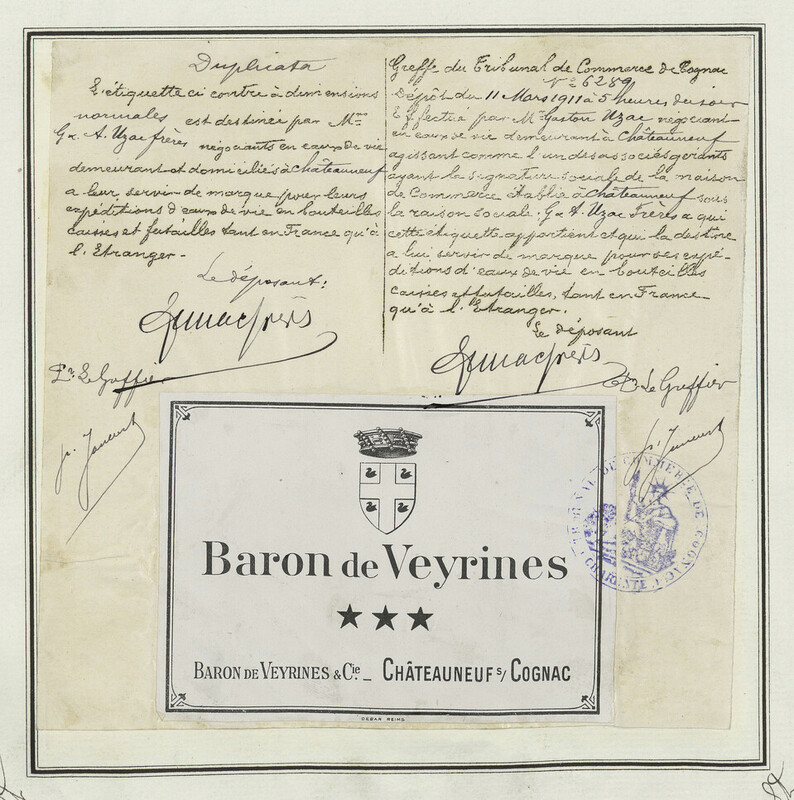 Duplicata
L'étiquette ci contre à dimensions
normales est destinée par Mrs
G & A. Uzac frères négociants en eaux de vie
demeurant et domiciliés à Châteauneuf
a leur servir de marque pour leurs
expéditions d'eaux de vie en bouteilles
caisses et futailles tant en France qu'à
l'Etranger -
Le déposant:
Le Greffier
Greffe du Tribunal de Commerce de Cognac
No 6289
Dépôt du 11 Mars 1911 à 5 heures du soir
Effectué par Mr Gaston Uzac négociant
en eaux de vie demeurant à Châteauneuf
agissant comme l'un des associés gérants
ayant la signature sociale de la maison
de Commerce établie à Châteauneuf sous
la raison sociale: G & A. Uzac Frères a qui
cette étiquette appartient et qui la destine
a lui servir de marque pour ses expé-
ditions d'eaux de vie en bouteilles
caisses et futailles, tant en France
qu'à l'Etranger.
Le déposant
Le Greffier
TRIBUNAL DE COMMERCE DE COGNAC
(CHARENTE)
Baron de Veyrines
★★★
BARON DE VEYRINES & Cie. _ CHÂTEAUNEUF s/ COGNAC
DEBAR REIMS